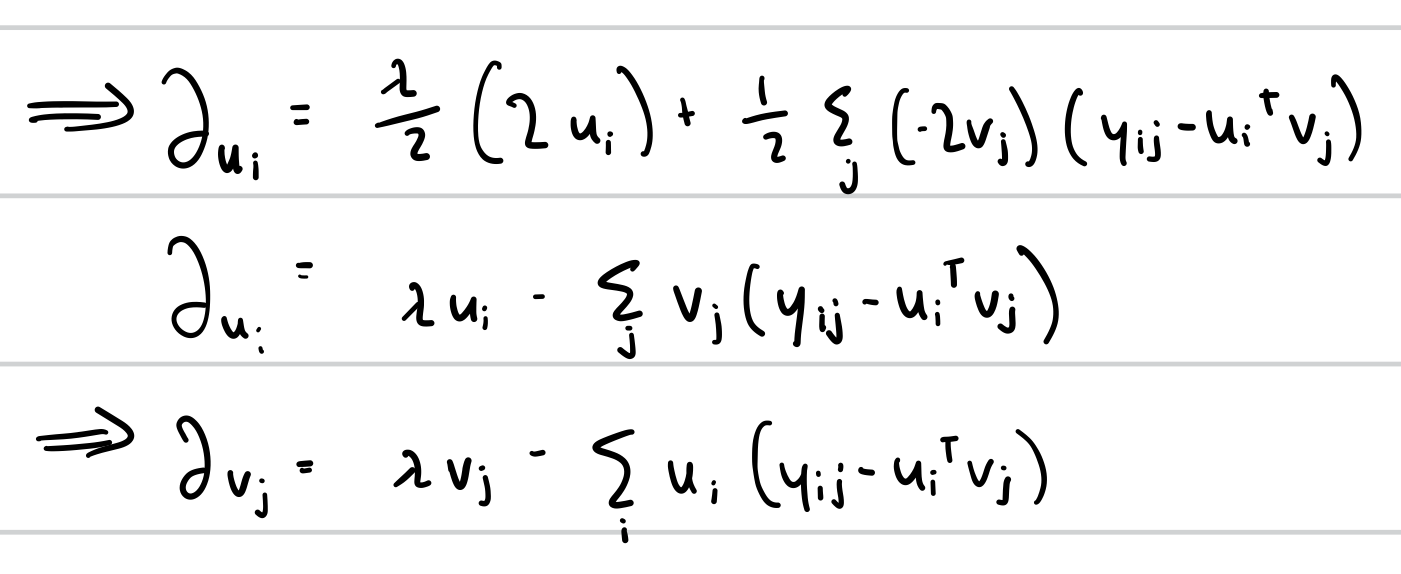 ⟹ ∂_{u_i} = λ/2 (2 u_i) + 1/2 Σ_j (-2v_j) (y_{ij} - u_i^T v_j)
∂_{u_i} = λ u_i - Σ_j v_j (y_{ij} - u_i^T v_j)
⟹ ∂_{v_j} = λ v_j - Σ_i u_i (y_{ij} - u_i^T v_j)